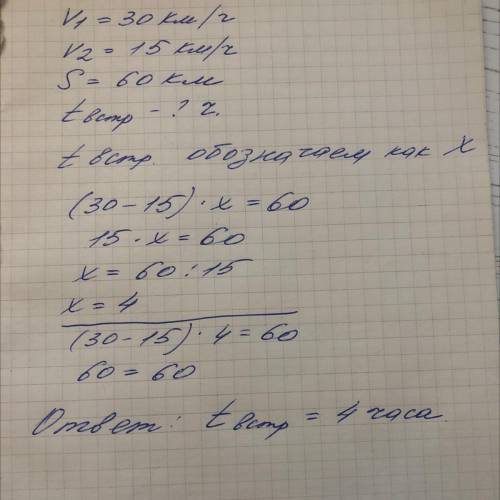 V1 = 30 км/ч
V2 = 15 км/ч
S = 60 км
t встр - ? ч.
t встр. обозначаем как x
(30-15) · x = 60
15 · x = 60
x = 60 : 15
x = 4
(30-15) · 4 = 60
60 = 60
Ответ: t встр = 4 часа.